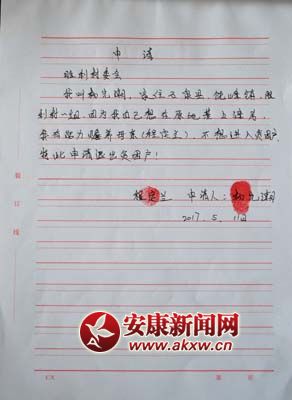 申请
胜利村委会
我叫杨克湖，家住石泉县，饶峰镇，胜
利村一组，因为我自己想在原地基上
我有能力赡养母亲（程定兰），不想进入贫困户
特此申请退出贫困户！
程定兰 申请人：杨克湖
2017．5．11日
装订线
安康新闻网
www.akxw.cn